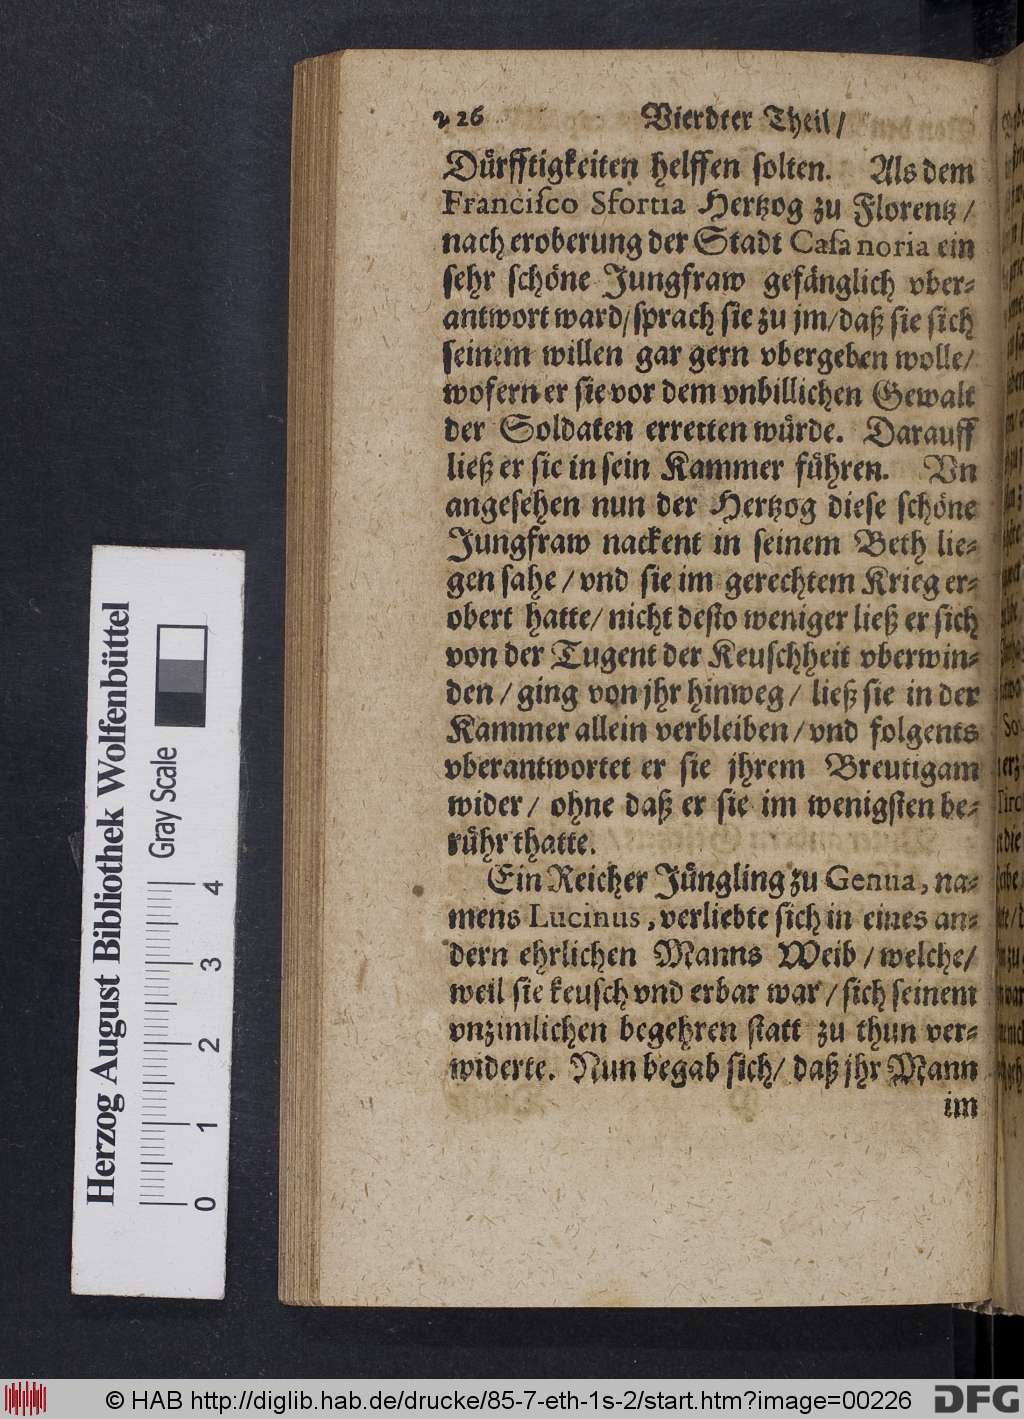 226 Vierdter Theil/
Dürfftigkeiten helffen solten. Als dem
Franciſco Sfortia Hertzog zu Florentz/
nach eroberung der Stadt Caſa noria ein
sehr schöne Jungfraw gefänglich vber-
antwort ward/sprach sie zu jm/daß sie sich
seinem willen gar gern vbergeben wolle/
wofern er sie vor dem vnbillichen Gewalt
der Soldaten erretten würde. Darauff
ließ er sie in sein Kammer führen. Vn
angesehen nun der Hertzog diese schöne
Jungfraw nackent in seinem Beth lie-
gen sahe/vnd sie im gerechtem Krieg er-
obert hatte/nicht desto weniger ließ er sich
von der Tugent der Keuschheit vberwin-
den/ging von jhr hinweg/ließ sie in der
Kammer allein verbleiben/vnd folgents
vberantwortet er sie jhrem Breutigam
wider/ohne daß er sie im wenigsten be-
rühr thatte.
Ein Reicher Jüngling zu Genua, na-
mens Lucinus, verliebte sich in eines an-
dern ehrlichen Manns Weib/welche/
weil sie keusch vnd erbar war/sich seinem
vnzimlichen begehren statt zu thun ver-
widerte. Nun begab sich/daß jhr Mann
im
Herzog August Bibliothek Wolfenbüttel
Gray Scale
0 1 2 3 4
© HAB http://diglib.hab.de/drucke/85-7-eth-1s-2/start.htm?image=00226
DFG